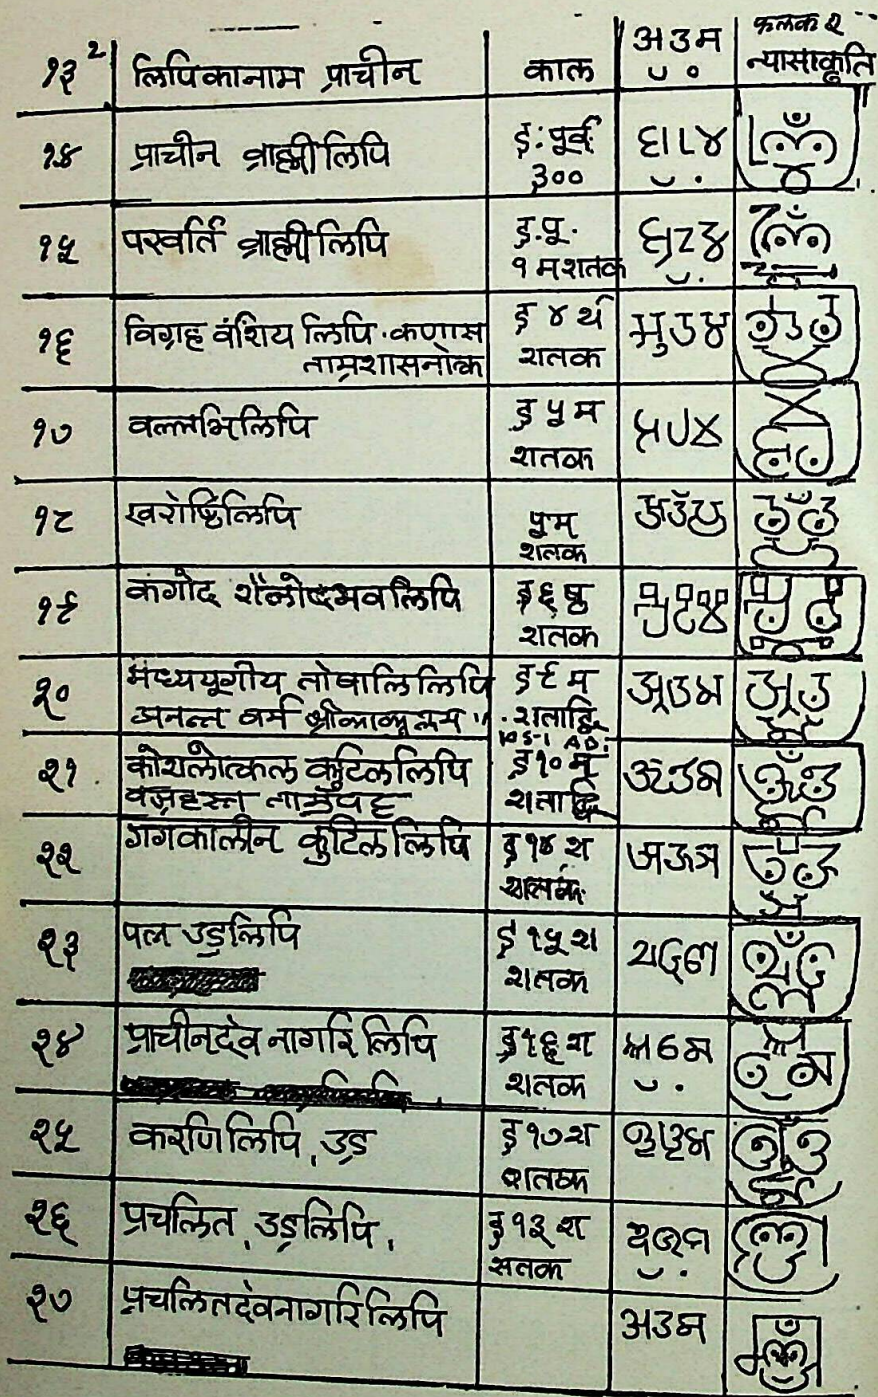 फलक २
१३ २ लिपिकानाम प्राचीन काल अउम न्यासाकृति
१४ प्राचीन ब्राह्मीलिपि इ:पूर्व
३००
१५ परवर्ति ब्राह्मीलिपि इ.पू.
१ मशतक
१६ विग्रह वंशिय लिपि.कणास इ ४र्थ
ताम्रशासनोक्त शतक
१७ वल्लभिलिपि इ ५म
शतक
१८ खरोष्टिलिपि ५म
शतक
१९ कंगोद शैलोद्भवलिपि इ ६ष्ठ
शतक
२० मध्ययूगीय तोषालिलिपि इ ९म
अनन्त वर्म शताद्वि
२१ कोशलोत्कल कुटिललिपि इ १०म
वज्रहस्त ताम्रपट्ट शताद्वि
२२ गगकालीन कुटिललिपि इ १४श
२३ पल उड्रलिपि इ १५श
शतक
२४ प्राचीनदेव नागरि लिपि इ १६श
शतक
२५ करणिलिपि, उड्र इ १७श
शतक
२६ प्रचलित, उड्रलिपि, इ १३श
सतक
२७ प्रचलितदेवनागरिलिपि अउम